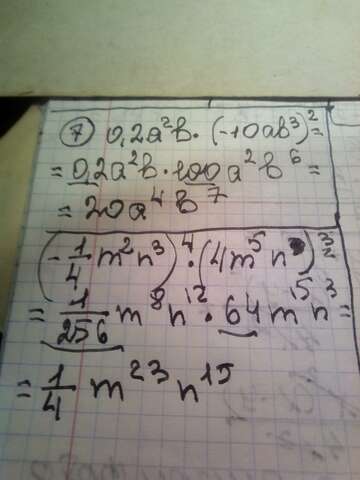 ⑦ 0,2a²b·(-10ab³)²=
=0,2a²b·100a²b⁶=
=20a⁴b⁷
(-1/4 m²n³)⁴·(4m⁵n)³=
=1/256 m⁸n¹²·64m¹⁵n³=
=1/4 m²³n¹⁵